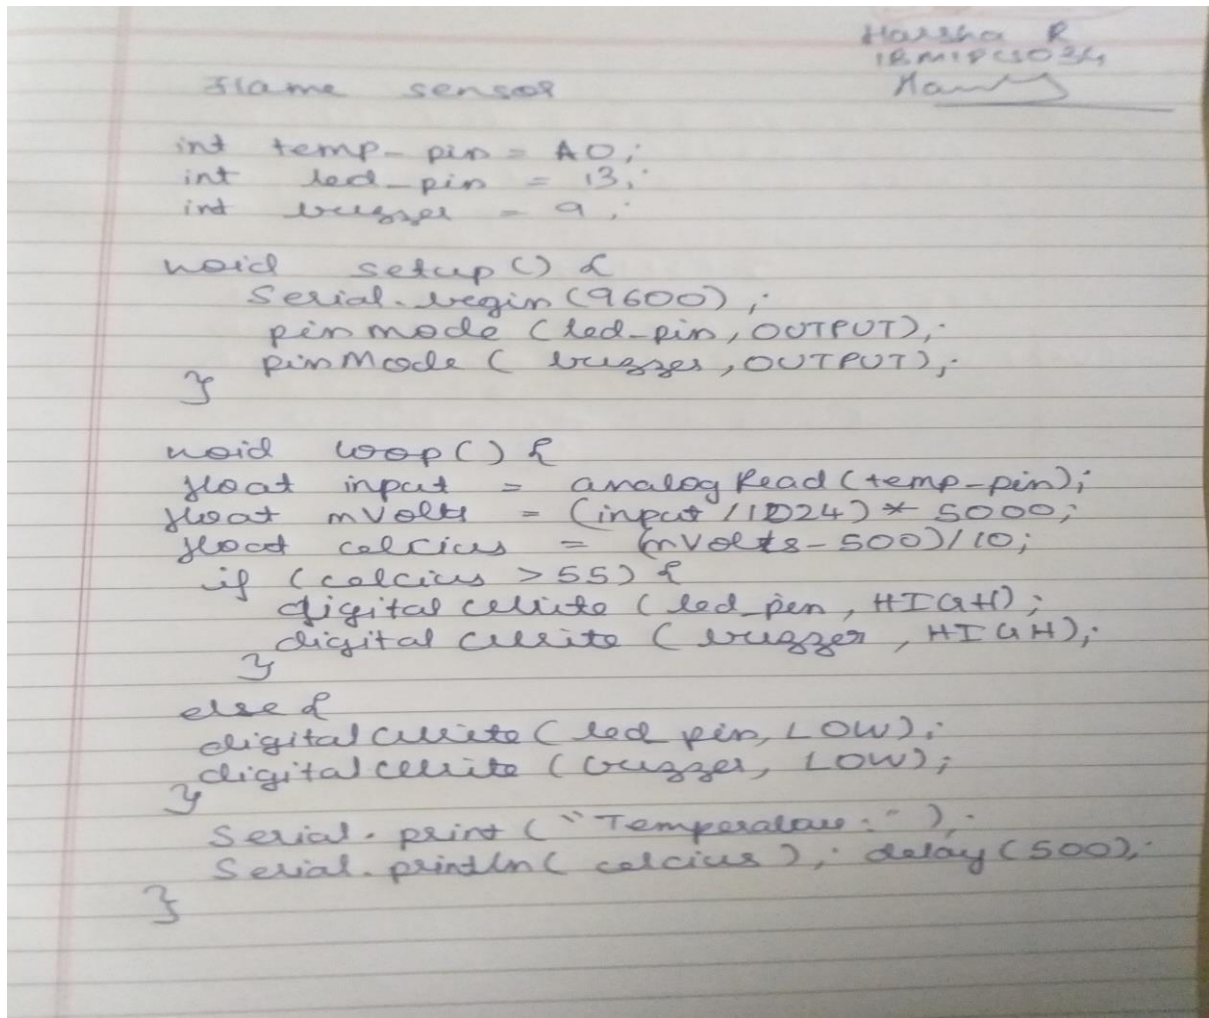 Harsha R
1BM18CS034
Flame sensor
int temp_pin = A0;
int led_pin = 13;
int buzzer = 9;
void setup() {
Serial.begin(9600);
pinmode (led_pin, OUTPUT);
pinMode ( buzzer, OUTPUT);
}
void loop() {
float input = analogRead(temp_pin);
float mVolts = (input / 1024) * 5000;
float celcius = (mVolts-500)/10;
if (celcius > 55) {
digitalWrite (led_pin, HIGH);
digitalWrite (buzzer, HIGH);
}
else {
digitalWrite (led pin, LOW);
digitalWrite (buzzer, LOW);
}
Serial.print("Temperature: ");
Serial.println( celcius ); delay(500);
}